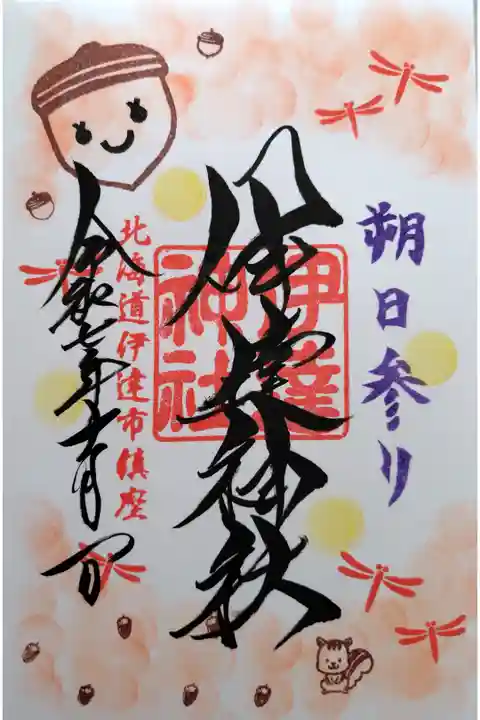 朔日参り
伊達神社
伊達
神社
北海道伊達市鎮座
令和七年十月一日